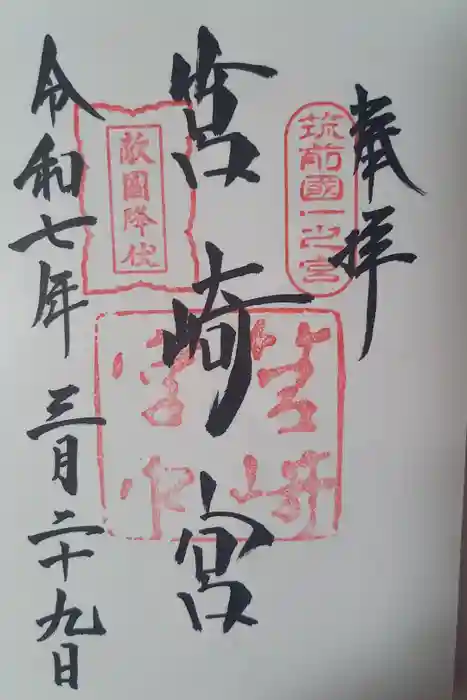 奉拝
筑前國一之宮
筥崎宮
筥崎
宮印
敵國降伏
令和七年 三月二十九日